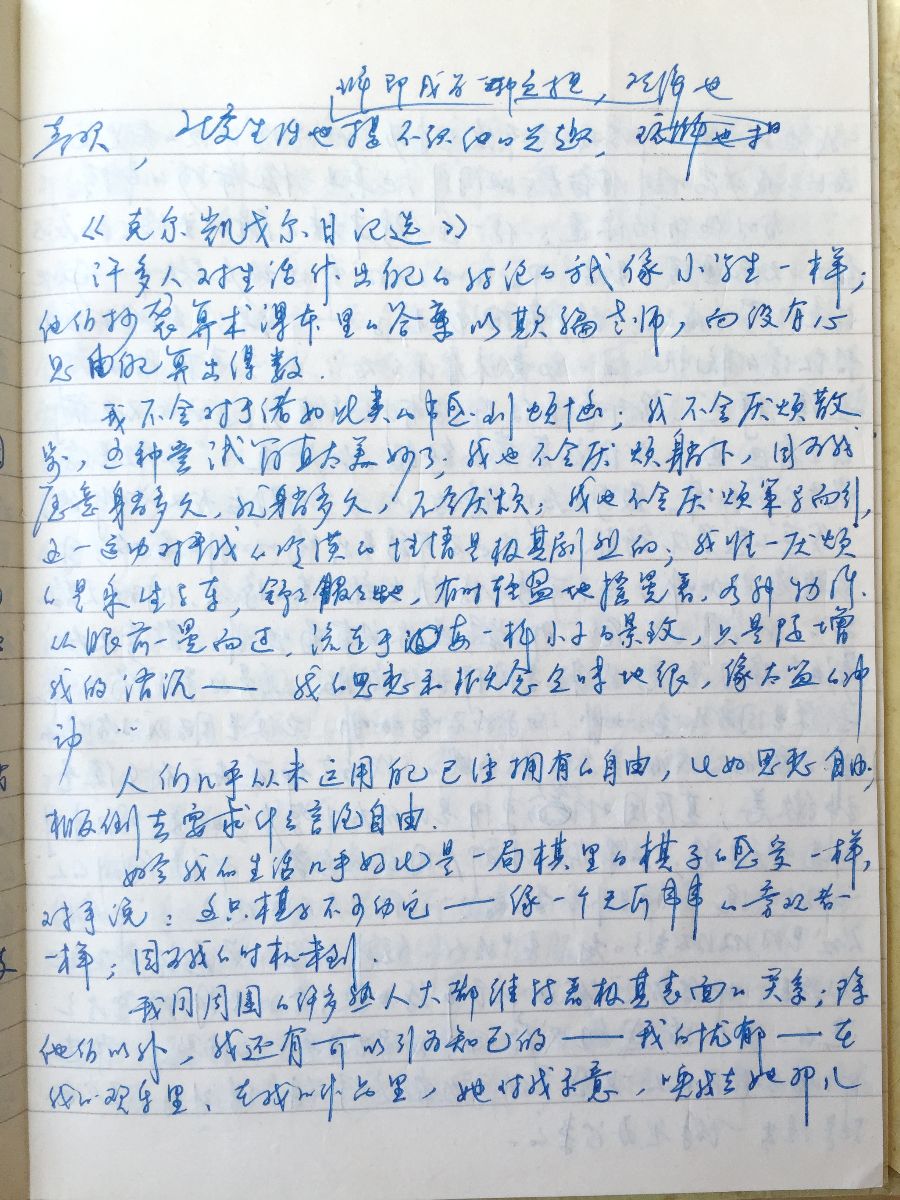 即成了一种负担，
喜欢，社交生活也提不起他的兴趣，
《克尔凯戈尔日记选》
许多人对生活作出他的结论的方式像小学生一样；
他们抄袭算术课本里的答案以欺骗老师，而没有心
思自己算出得数．
我不会对于诸如此类的事感到烦恼；我不会厌烦散
步，这种尝试简直太美妙了；我也不会厌烦躺下，因为我
愿意躺多久，就躺多久，不会厌烦；我也不会厌烦
这一运动对于我的性情是极其剧烈的；我唯一厌烦
的是乘坐马车，舒舒服服地，有时轻盈地摇晃着，各种物体
从眼前一晃而过，流连于每一样小小的景致，只是陡增
我的消沉——我的思想和概念，像太监的冲
动…
人们几乎从未运用他已经拥有的自由，比如思想自由，
相反倒去要求什么言论自由．
如今我的生活几乎好比是一局棋里的棋子的感受一样，
对手说：这只棋子不可动它——像一个无所事事的旁观者
一样；因为我的时机未到．
我同周围的许多熟人大都维持着极其表面的关系；除
他们以外，我还有一可以引为知己的——我的忧郁——在
我的欢乐里、在我的作品里，她对我示意，唤我去她那儿